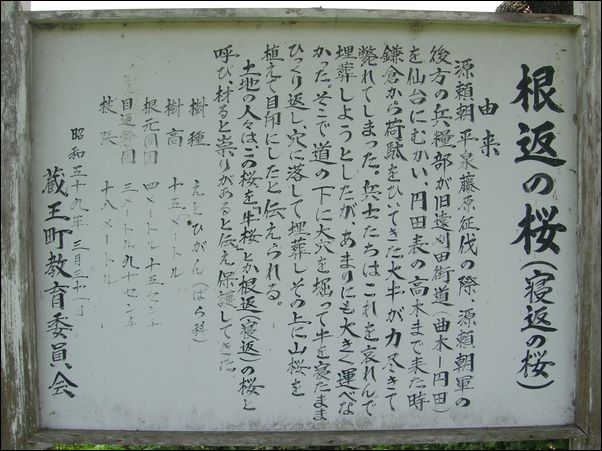 根返の桜(寝返の桜)
由来
源頼朝平泉藤原征伐の際源頼朝軍の
後方の兵糧部が旧遠刈田街道(曲木ー円田)
を仙台にむかい、円田表の高木まで来た時
鎌倉から荷駄をひいてきた大牛が力尽きて
斃れてしまった。兵士たちはこれを哀れんで
埋葬しようとしたが、あまりにも大きく運べな
かった。そこで道の下に大穴を掘って牛を寝たまま
ひっくり返し穴に落して埋葬しその上に山桜を
植えて目印にしたと伝えられる。
土地の人々は、この桜を「牛桜」とか根返(寝返)の桜と
呼び、材ると祟りがあると伝え保護してきた。
樹種 えどひがん(ばら科)
樹高 十五メートル
根元周囲 四メートル十五センチ
目通幹囲 三メートル九十センチ
枝張 十八メートル
昭和五十九年三月三十一日
蔵王町教育委員会